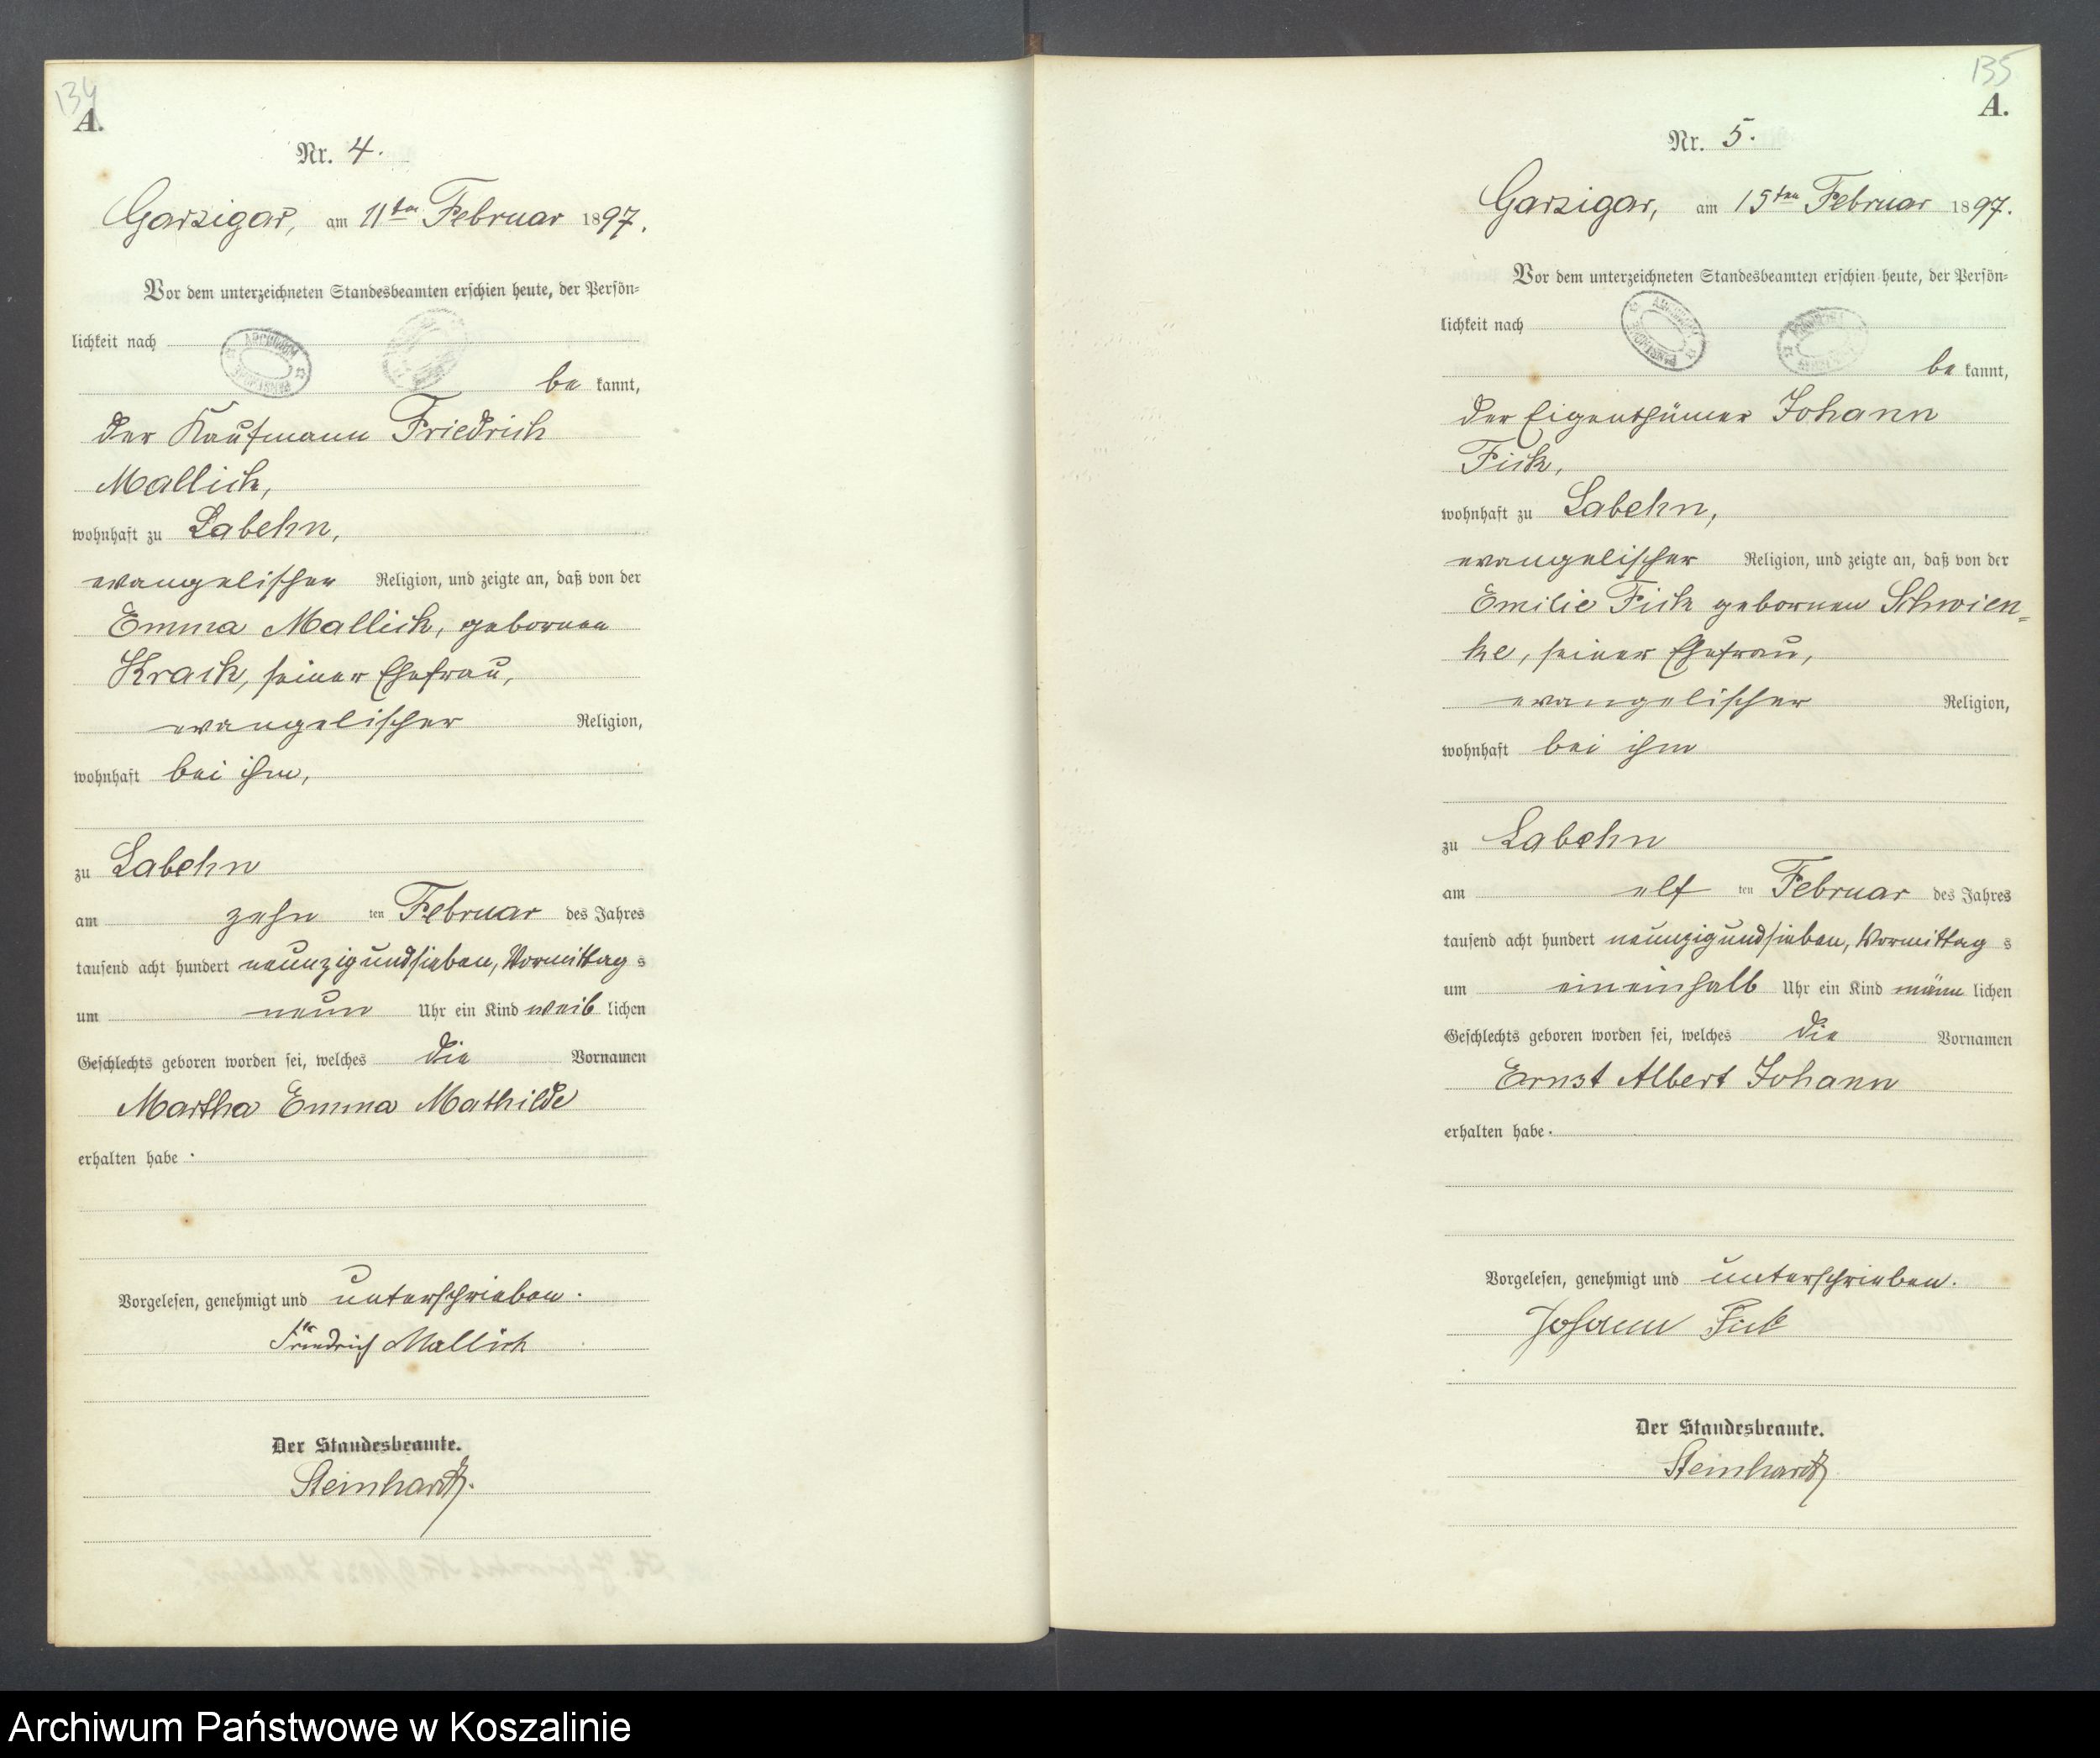 134
A.
Nr. 4.
Garzigar, am 11ten Februar 1897.
Vor dem unterzeichneten Standesbeamten erschien heute, der Persön=
lichkeit nach
ARCHIWUM PAŃSTWOWE
be kannt,
der Kaufmann Friedrich
Mallich,
wohnhaft zu Labehn,
evangelischer Religion, und zeigte an, daß von der
Emma Mallich, geborenen
Krach, seiner Ehefrau,
evangelischer Religion,
wohnhaft bei ihm,
zu Labehn
am zehn ten Februar des Jahres
tausend acht hundert neunzig und sieben, Vormittag s
um neun Uhr ein Kind weib lichen
Geschlechts geboren worden sei, welches die Vornamen
Martha Emma Mathilde
erhalten habe.
Vorgelesen, genehmigt und unterschrieben.
Friedrich Mallich
Der Standesbeamte.
Steinhardt.
135
A.
Nr. 5.
Garzigar, am 15ten Februar 1897.
Vor dem unterzeichneten Standesbeamten erschien heute, der Persön=
lichkeit nach
ARCHIWUM PAŃSTWOWE
be kannt,
der Eigenthümer Johann
Fick,
wohnhaft zu Labehn,
evangelischer Religion, und zeigte an, daß von der
Emilie Fick geborenen Schwien=
ke, seiner Ehefrau,
evangelischer Religion,
wohnhaft bei ihm
zu Labehn
am elf ten Februar des Jahres
tausend acht hundert neunzig und sieben, Vormittag s
um eineinhalb Uhr ein Kind männ lichen
Geschlechts geboren worden sei, welches die Vornamen
Ernst Albert Johann
erhalten habe.
Vorgelesen, genehmigt und unterschrieben.
Johann Fick
Der Standesbeamte.
Steinhardt
Archiwum Państwowe w Koszalinie